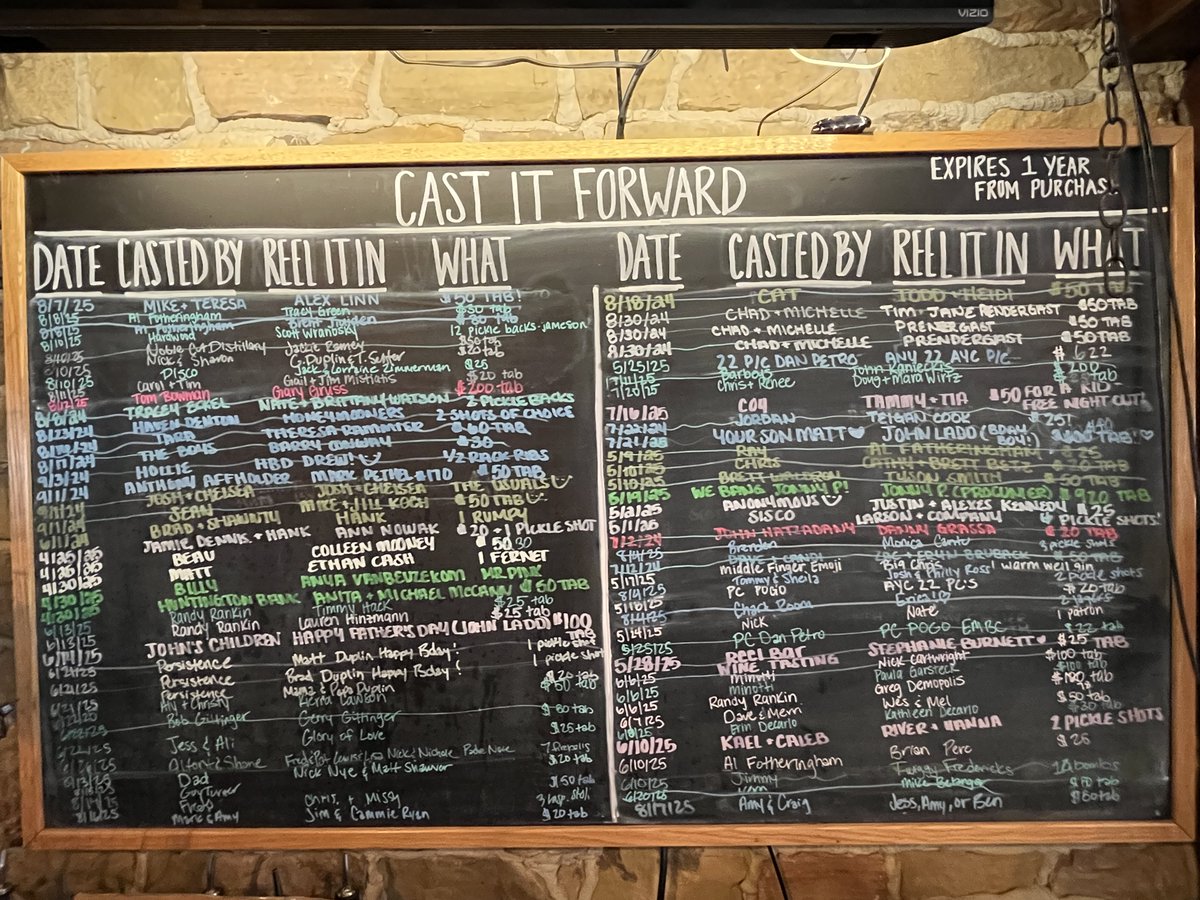 VIZIO
CAST IT FORWARD
EXPIRES 1 YEAR
FROM PURCHAS
DATE CASTED BY REEL IT IN WHAT
8/7/25 MIKE + TERESA ALEX LINN $50 TAB!
8/8/25 Al Fotheringham Tracy Green $50 tab
Al Fotheringham
8/10/25 Hardwood Scott Wranosky 12 pickle backs - jameson
Noble Cut Distillery Jackie Ramey $50 tab
Nick & Sharon C. Duplin & T. Sutter $20 tab
8/10/25 Disco Jack & Lorraine Zimmerman $25
8/11/25 Carol + Tim Gail + Jim Mistiatis $20 tab
8/12/25 Tom Bowman Gary Gruss $200 tab
TRACEY ECKEL NATE + BRITTANY WATSON 2 PICKLE BACKS
HAVEN DENTON HONEYMOONERS 2 SHOTS OF CHOICE
8/23/24 TARA THERESA $60 TAB
THE BOYS BARRY CONWAY $30
8/17/24 HOLLIE HBD DREW! 1/2 RACK RIBS
8/31/24 ANTHONY AFFHOLDER MARK $50 TAB
9/1/24 JOSH + CHELSEA JOSH + CHELSEA THE USUALS
9/1/24 SEAN MIKE + JILL KOCH $50 TAB
9/1/24 BRAD + SHAWNTY HANK RUMPY
JAMIE DENNIS + HANK ANN NOWAK $20 + 1 PICKLE SHOT
4/25/25 BEAU COLLEEN MOONEY $50
4/26/25 MATT ETHAN CASH 1 FERNET
4/30/25 BILLY ANYA VANBEUZEKOM MR PINK
4/30/25 HUNTINGTON BANK ANITA + MICHAEL MCCANN $50 TAB
Randy Rankin Timmy Hack $25 tab
6/13/25 Randy Rankin Lauren Hinzmann $25 tab
6/13/25 JOHN'S CHILDREN HAPPY FATHER'S DAY (JOHN LADD) $100 TAB
6/14/25 Persistence Matt Duplin Happy Bday! 1 pickle shot
6/21/25 Persistence Brad Duplin Happy Bday! 1 pickle shot
6/21/25 Persistence Mama & Papa Duplin $20 tab
6/21/25 Al + Christy Lawson $50 tab
Bob Gittinger Gerry Gittinger $80 tab
Jess & Ali Glory of Love $25 tab
Shane Nick & Nichole 7 fireballs
Dad Nick Nye & Matt Shawver $20 tab
Guy Turner $50 tab
Fred Chris + Missy 3
8/16/25 Mark & Amy Jim & Cammie Ryan $20 tab
DATE CASTED BY REEL IT IN WHAT
8/18/24 CAT TODD + HEIDI $50 TAB
8/20/24 CHAD + MICHELLE TIM + JANE PRENDERGAST $50 TAB
8/30/24 CHAD + MICHELLE PRENDERGAST $50 TAB
8/30/24 CHAD + MICHELLE PRENDERGAST $50 TAB
5/25/25 22 P/C DAN PETRO ANY 22 AYC P/C $622
Barbos John Kaniecki $200
7/20/25 Chris + Renee Doug + Mara Wirtz tab
7/16/25 COY TAMMY + TIA $50 FOR A KID FREE NIGHT OUT!
7/22/24 JORDAN TEIGAN COOK $25!
7/21/25 YOUR SON MATT JOHN LADD (BDAY BOY!) $100 TAB!
5/9/25 RAY AL FOTHERINGHAM $25
5/10/25 CHRIS CATHY + BRETT BETZ TAB
5/10/25 BRETT TYSON SMITH $50 TAB
5/19/25 WE BANG JONNY P! JONNY P. (PROCUNIER) $920 TAB
5/2/25 ANONYMOUS JUSTIN + ALEXES KENNEDY $25
5/11/25 SISCO LARSON + COMPANY 4 PICKLE SHOTS!
7/2/24 JOHN HATZADANY DANNY GRASSA $20 TAB
Brendan Monica Canter 3 pickle shots
7/12/24
middle Finger Emoji Big Chips 1 warm well gin
5/17/25 Tommy & Sheila Josh & Thirty Ross! 2 pickle shots
8/4/25 PC POGO AYC 22 PC'S $20 tab
5/16/25 Chart Room
Nick Nate 1 patron
5/24/25 PC Dan Petro PC POGO EMBC $22 tab
5/25/25 REEL BAR STEPHANIE BURNETT $25 TAB
5/28/25 WINE TASTING Nick Cartwright $100 tab
6/6/25 Minotti Paula Garsteck $100 tab
6/6/25 Minotti Greg Demopolis $100 tab
6/6/25 Randy Rankin Wes & Mel $50 tab
6/7/25 Dave & Merm Kathleen Decarlo $30 tab
6/8/25 Erin Decarlo
6/10/25 KAEL + CALEB RIVER + HANNA 2 PICKLE SHOTS
6/10/25 Al Fotheringham Brian Perc $25
6/10/25 Jimmy Fuzzy Fredericks 10 bombs
6/20/25 Mike Belanger $70 tab
8/17/25 Amy & Craig Jess, Amy, or Ben $50 tab